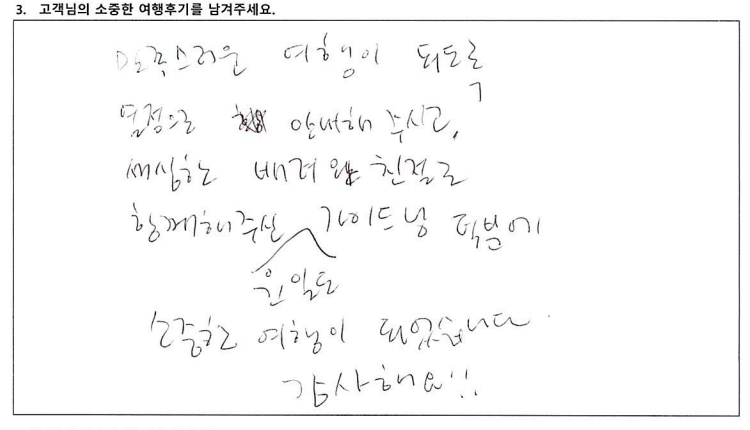 3. 고객님의 소중한 여행후기를 남겨주세요.
만족스러운 여행이 되도록
열정으로 안내해 주시고,
세심한 배려와 친절로
함께해주신 가이드님 덕분에
소중한 여행이 되었습니다.
감사해요!!